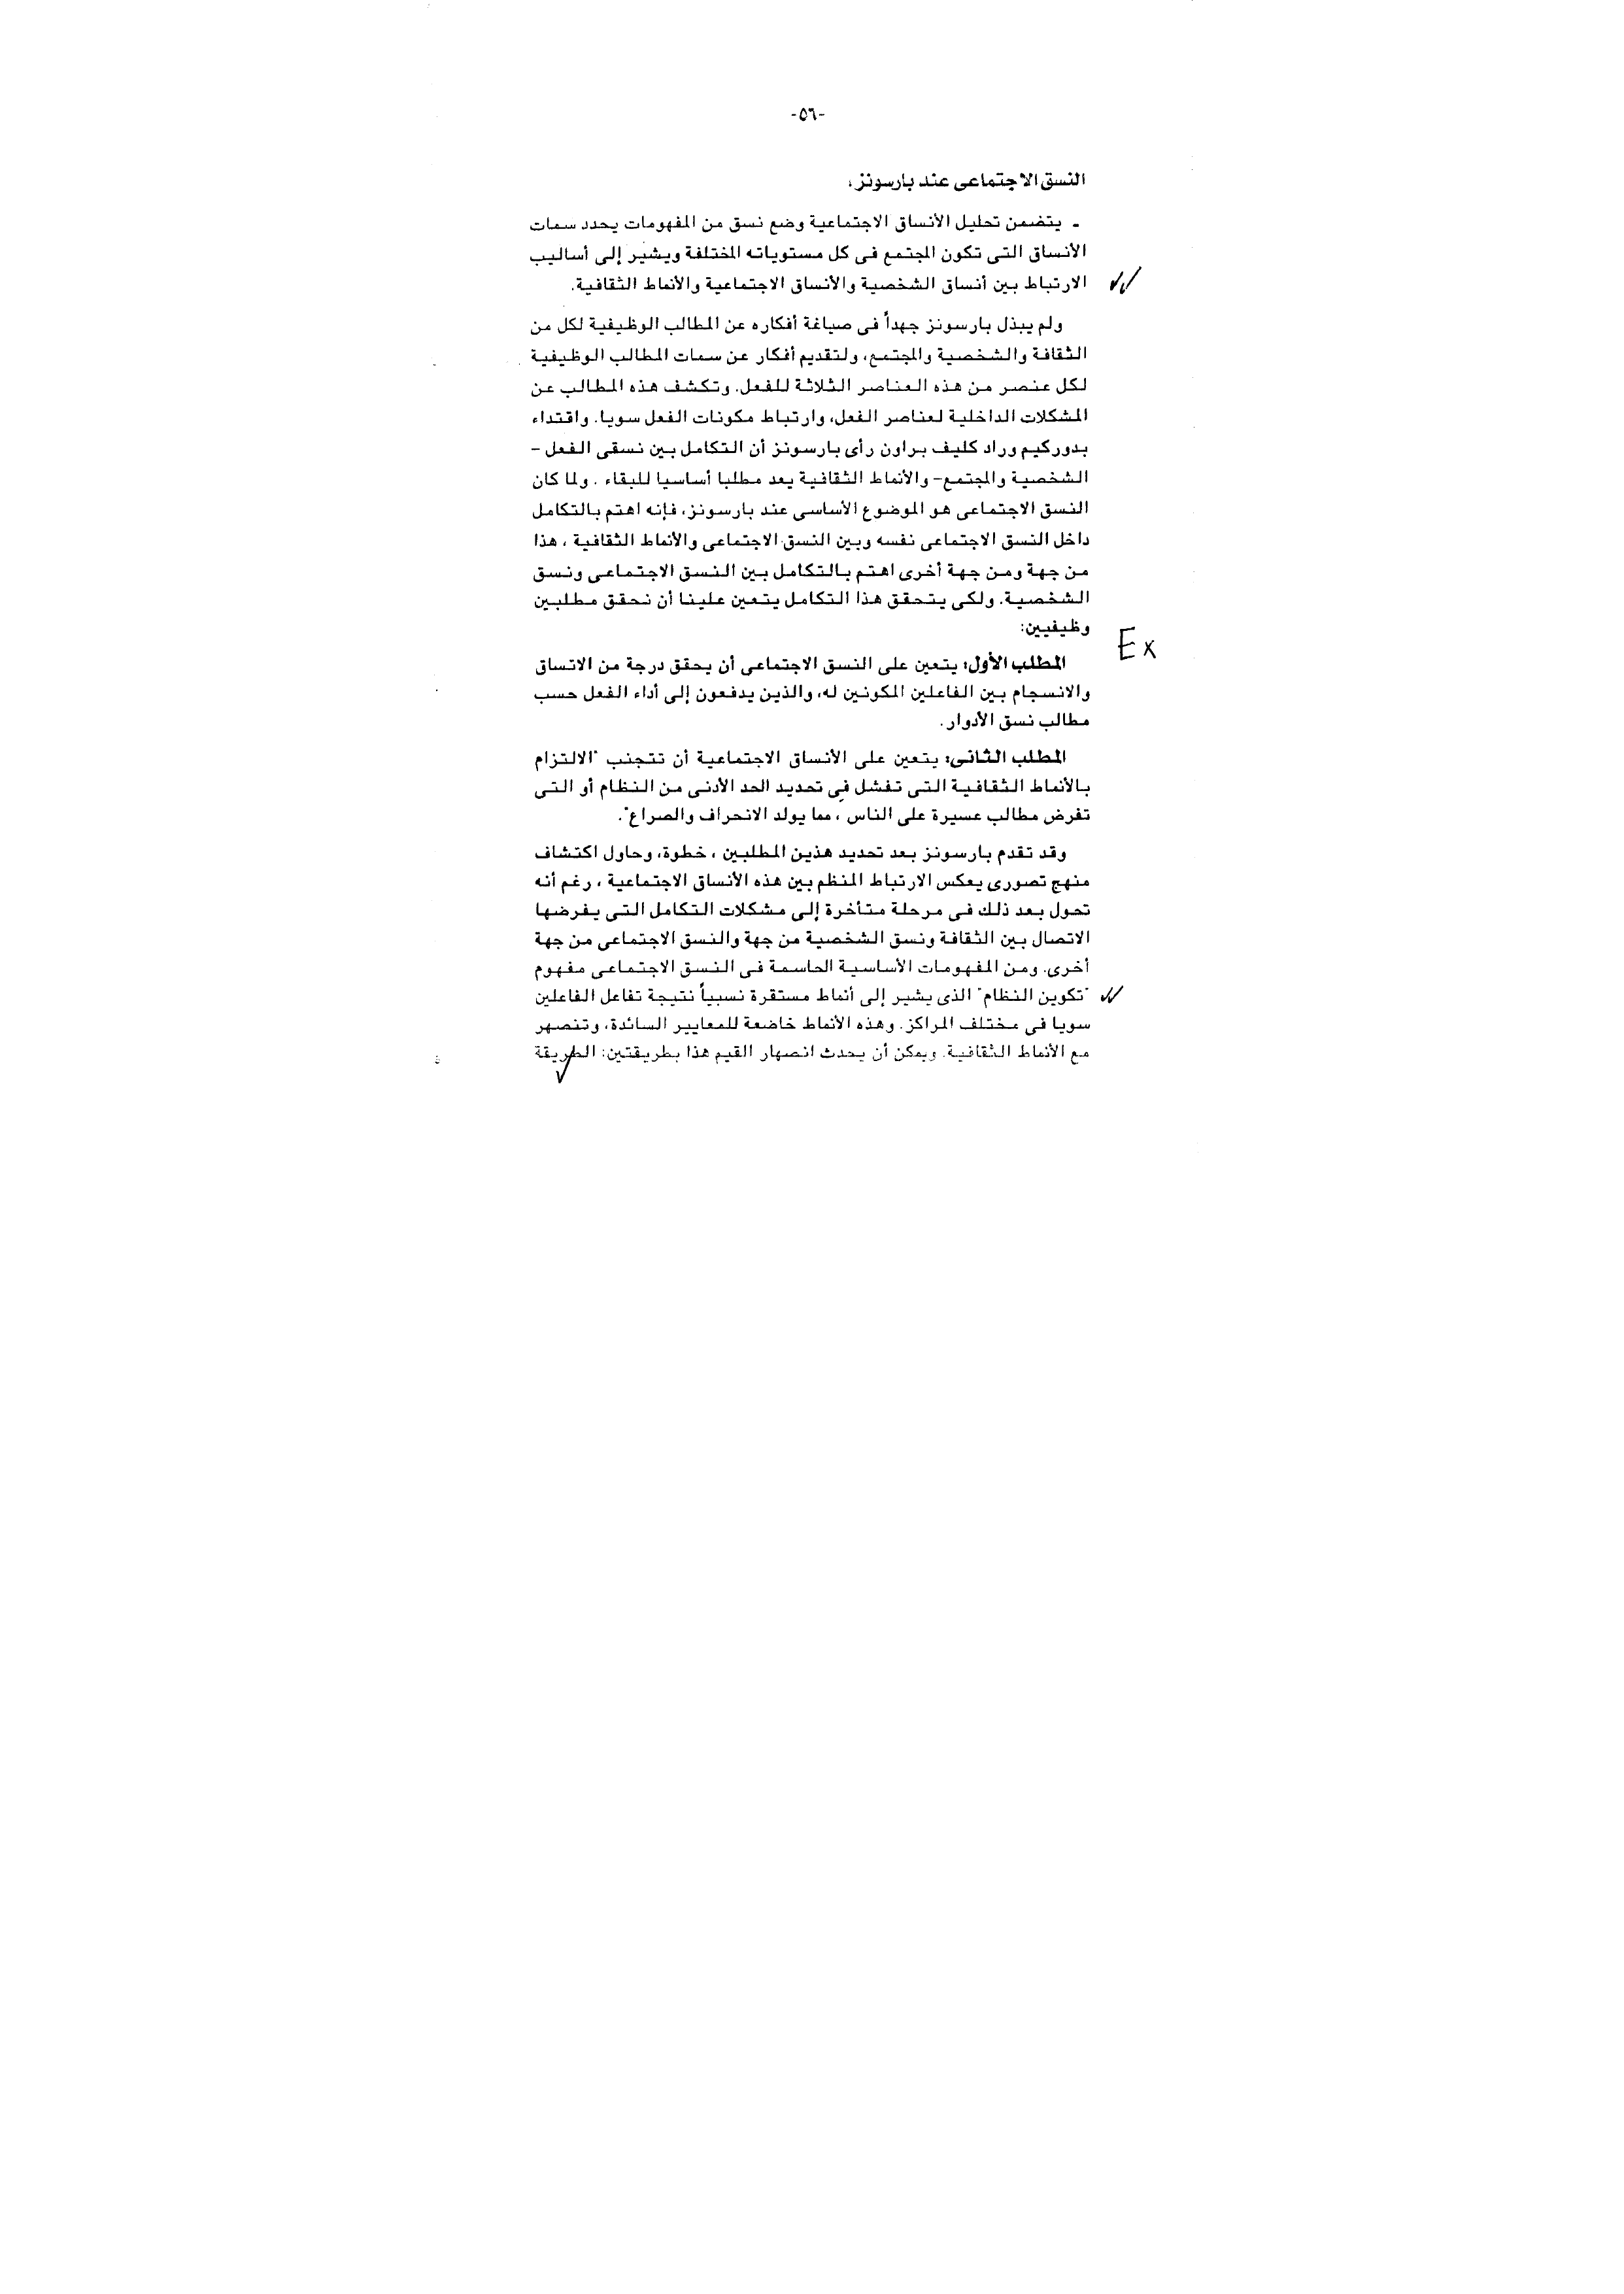 -٥٦-
النسق الاجتماعى عند بارسونز،
- يتضمن تحليل الأنساق الاجتماعية وضع نسق من المفهومات يحدد سمات
الأنساق التى تكون المجتمع فى كل مستوياته المختلفة ويشير إلى أساليب
الارتباط بين أنساق الشخصية والأنساق الاجتماعية والأنماط الثقافية.
ولم يبذل بارسونز جهداً فى صياغة أفكاره عن المطالب الوظيفية لكل من
الثقافة والشخصية والمجتمع، ولتقديم أفكار عن سمات المطالب الوظيفية
لكل عنصر من هذه العناصر الثلاثة للفعل. وتكشف هذه المطالب عن
المشكلات الداخلية لعناصر الفعل، وارتباط مكونات الفعل سويا. واقتداء
بدوركيم وراد كليف براون رأى بارسونز أن التكامل بين نسقى الفعل -
الشخصية والمجتمع- والأنماط الثقافية يعد مطلبا أساسيا للبقاء . ولما كان
النسق الاجتماعى هو الموضوع الأساسى عند بارسونز، فإنه اهتم بالتكامل
داخل النسق الاجتماعى نفسه وبين النسق الاجتماعى والأنماط الثقافية ، هذا
من جهة ومن جهة أخرى اهتم بالتكامل بين النسق الاجتماعى ونسق
الشخصية. ولكى يتحقق هذا التكامل يتعين علينا أن نحقق مطلبين
وظيفيين:
Ex
المطلب الأول: يتعين على النسق الاجتماعى أن يحقق درجة من الاتساق
والانسجام بين الفاعلين المكونين له، والذين يدفعون إلى أداء الفعل حسب
مطالب نسق الأدوار.
المطلب الثانى: يتعين على الأنساق الاجتماعية أن تتجنب "الالتزام
بالأنماط الثقافية التى تفشل فى تحديد الحد الأدنى من النظام أو التى
تفرض مطالب عسيرة على الناس ، مما يولد الانحراف والصراع".
وقد تقدم بارسونز بعد تحديد هذين المطلبين ، خطوة، وحاول اكتشاف
منهج تصورى يعكس الارتباط المنظم بين هذه الأنساق الاجتماعية ، رغم أنه
تحول بعد ذلك فى مرحلة متأخرة إلى مشكلات التكامل التى يفرضها
الاتصال بين الثقافة ونسق الشخصية من جهة والنسق الاجتماعى من جهة
أخرى. ومن المفهومات الأساسية الحاسمة فى النسق الاجتماعى مفهوم
"تكوين النظام" الذى يشير إلى أنماط مستقرة نسبياً نتيجة تفاعل الفاعلين
سويا فى مختلف المراكز. وهذه الأنماط خاضعة للمعايير السائدة، وتنصهر
مع الأنماط الثقافية. ويمكن أن يحدث انصهار القيم هذا بطريقتين: الطريقة